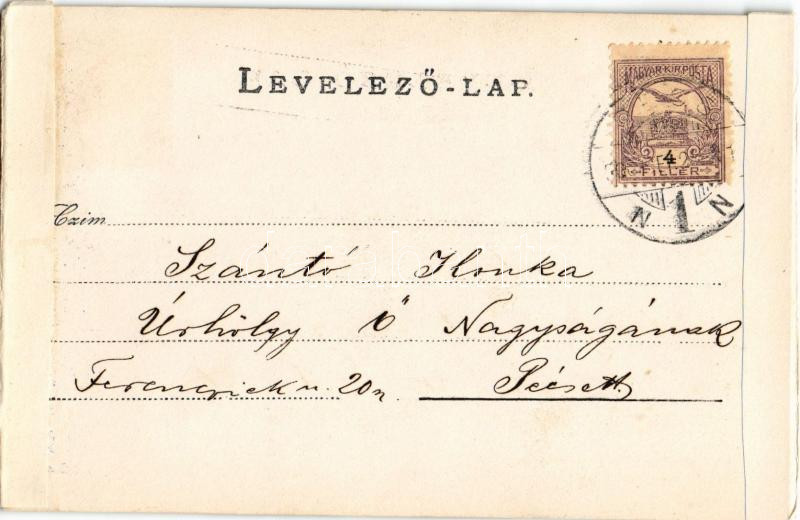 LEVELEZŐ-LAP.
MAGYAR·KIR·POSTA
4
FILLÉR
1
Czim
Szántó Ilonka
Úrhölgy ő Nagyságának
Ferencziek u. 20 Pécsett